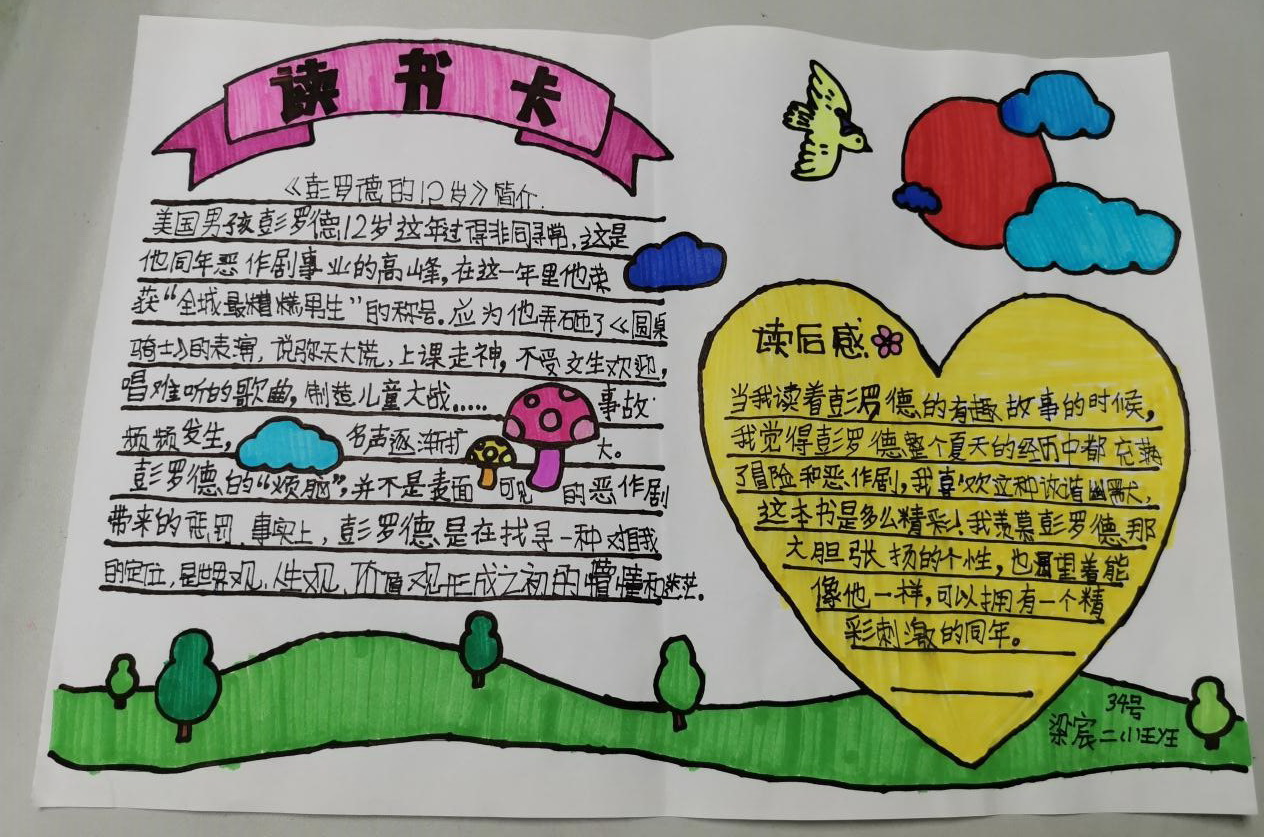 读书卡
《彭罗德的12岁》简介
美国男孩彭罗德12岁这年过得非同寻常，这是
他同年恶作剧事业的高峰，在这一年里他荣
获“全城最糟糕男生”的称号。应为他弄砸了《圆桌
骑士》的表演，说弥天大谎，上课走神，不受女生欢迎，
唱难听的歌曲，制造儿童大战……事故
频频发生，名声逐渐扩大。
彭罗德的“烦脑”，并不是表面可见的恶作剧
带来的惩罚，事实上，彭罗德是在找寻一种对自我
的定位，是世界观、人生观、价值观形成之初的懵懂和迷茫。
读后感
当我读着彭罗德的有趣故事的时候，
我觉得彭罗德整个夏天的经历中都充满
了冒险和恶作剧，我喜欢这种诙谐幽默，
这本书是多么精彩！我羡慕彭罗德那
大胆张扬的个性，也渴望着能
像他一样，可以拥有一个精
彩刺激的同年。
34号
梁宸二小